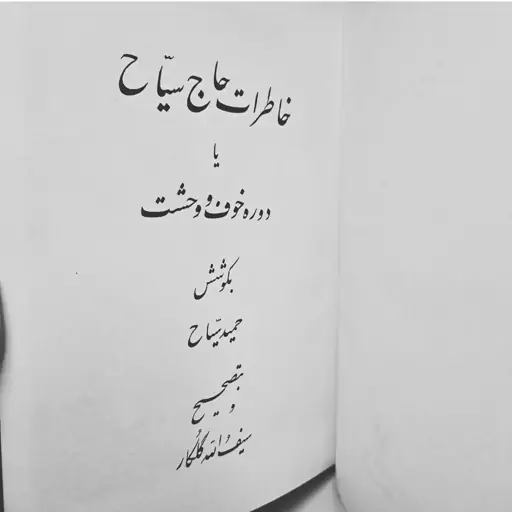 خاطرات حاج سیّاح
یا
دوره خوف و وحشت
بکوشش
حمید سیّاح
و
بتصحیح
سیف الله گلکار